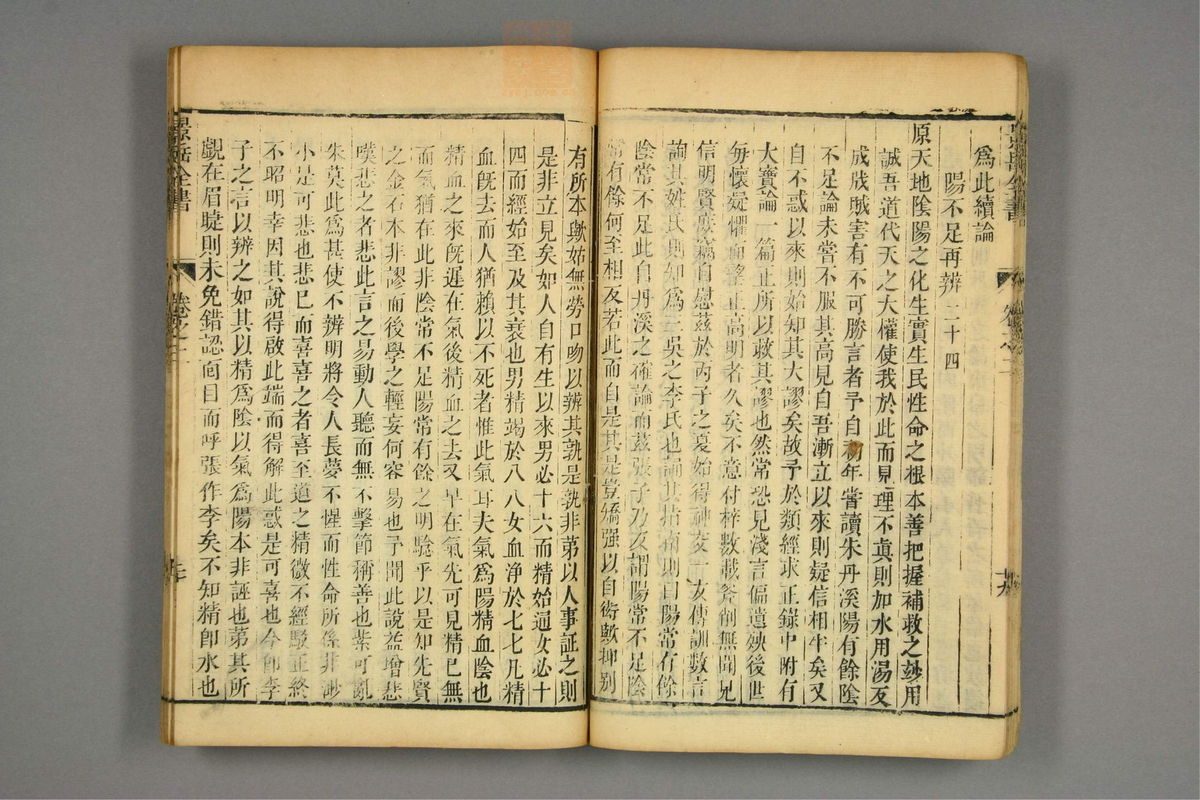 景岳全書
卷之二
十九
為此續論
陽不足再辨二十四
原天地陰陽之化生實生民性命之根本善把握補救之妙用
誠吾道代天之大權使我於此而見理不真則加水用湯反
成戕賊害有不可勝言者予自初年嘗讀朱丹溪陽有餘陰
不足論未嘗不服其高見自吾漸立以來則疑信相半矣又
自不惑以來則始知其大謬矣故予於類經求正錄中附有
大寶論一篇正所以救其謬也然常恐見淺言偏遺殃後世
每懷疑懼而望正高明者久矣不意付梓數載斧削無聞見
信明賢庶竊自慰茲於丙子之夏始得神交一友傳訓數言
詢其姓氏則知為三吳之李氏也誦其指南則曰陽常有餘
陰常不足此自丹溪之確論而茲張子乃反謂陽常不足陰
常有餘何至相反若此而自是其是豈矯强以自衒歟抑别
有所本歟姑無勞口吻以辨其孰是孰非第以人事証之則
是非立見矣如人自有生以來男必十六而精始通女必十
四而經始至及其衰也男精竭於八八女血淨於七七凡精
血既去而人猶賴以不死者惟此氣耳夫氣為陽精血陰也
精血之來既遲在氣後精血之去又早在氣先可見精已無
而氣猶在此非陰常不足陽常有餘之明驗乎以是知先賢
之金石本非謬而後學之輕妄何容易也予聞此說益增悲
嘆悲之者悲此言之易動人聽而無不擊節稱善也紫可亂
朱莫此為甚使不辨明將令人長夢不惺而性命所係非渺
小是可悲也悲已而喜喜之者喜至道之精微不經駁正終
不昭明幸因其說得啟此端而得解此惑是可喜也今即李
子之言以辨之如其以精為陰以氣為陽本非誣也第其所
覷在眉睫則未免錯認面目而呼張作李矣不知精即水也
景岳全書
卷之二
二十